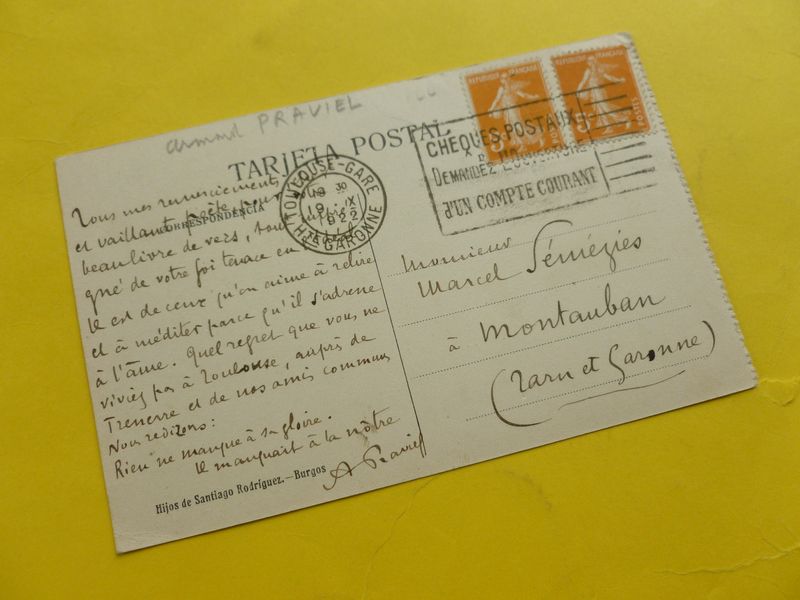 Armand PRAVIEL
TARJETA POSTAL
CORRESPONDENCIA
REPUBLIQUE FRANÇAISE
REPUBLIQUE FRANÇAISE
POSTES
CHEQUES POSTAUX
DEMANDEZ L'OUVERTURE
D'UN COMPTE COURANT
TOULOUSE-GARE
18 30
19 IX
1922
HTE GARONNE
Tous mes remerciements
et vaillant poète, pour
beau livre de vers, tout
gné de votre foi tenace en
Il est de ceux qu'on aime à relire
et à méditer parce qu'il s'adresse
à l'âme. Quel regret que vous ne
viviez pas à Toulouse, auprès de
Trenerre et de nos amis communs
Nous redirons:
Rien ne manque à sa gloire.
Il manquait à la nôtre
A Praviel
Hijos de Santiago Rodríguez.—Burgos
Monsieur
Marcel Sémézies
à Montauban
(Tarn et Garonne)